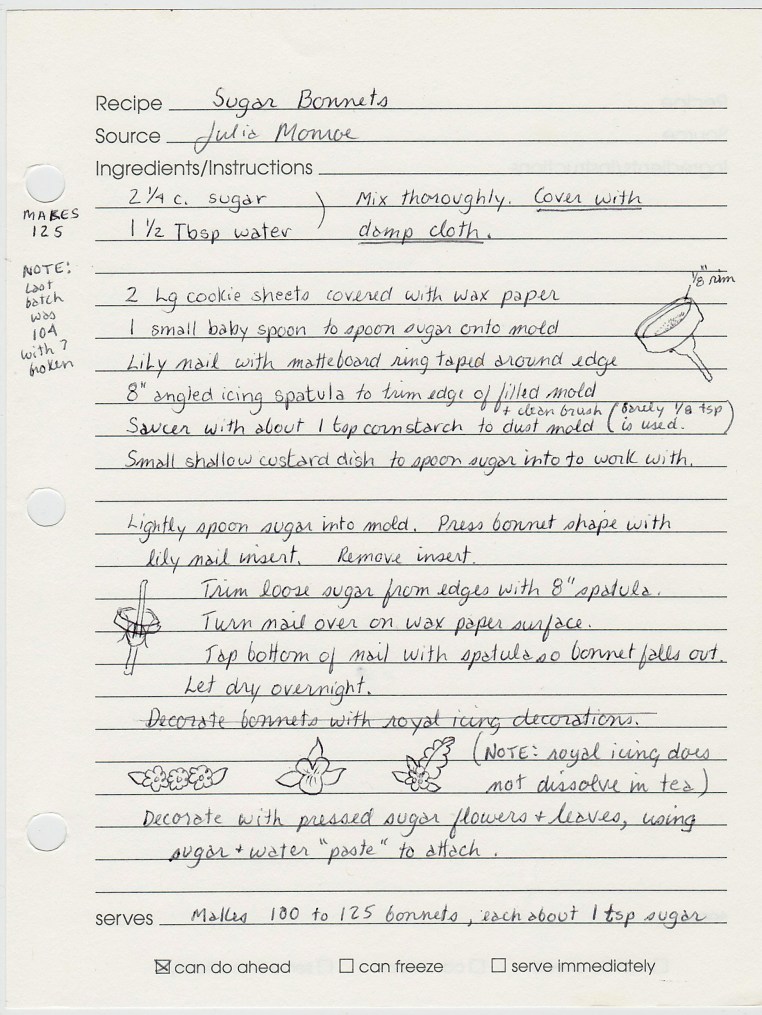 Recipe Sugar Bonnets
Source Julia Monroe
Ingredients/Instructions
2 1/4 c. sugar ) Mix thoroughly. Cover with
1 1/2 Tbsp water damp cloth.
MAKES
125
NOTE:
Last
batch
was
104
with 7
broken
1/8" rim
2 Lg cookie sheets covered with wax paper
1 small baby spoon to spoon sugar onto mold
Lily nail with matteboard ring taped around edge
8" angled icing spatula to trim edge of filled mold
+ clean brush (barely 1/8 tsp
Saucer with about 1 tsp cornstarch to dust mold is used.)
Small shallow custard dish to spoon sugar into to work with.
Lightly spoon sugar into mold. Press bonnet shape with
lily nail insert. Remove insert.
Trim loose sugar from edges with 8" spatula.
Turn nail over on wax paper surface.
Tap bottom of nail with spatula so bonnet falls out.
Let dry overnight.
Decorate bonnets with royal icing decorations.
(NOTE: royal icing does
not dissolve in tea)
Decorate with pressed sugar flowers + leaves, using
sugar + water "paste" to attach.
serves Makes 100 to 125 bonnets, each about 1 tsp sugar
☒ can do ahead ☐ can freeze ☐ serve immediately